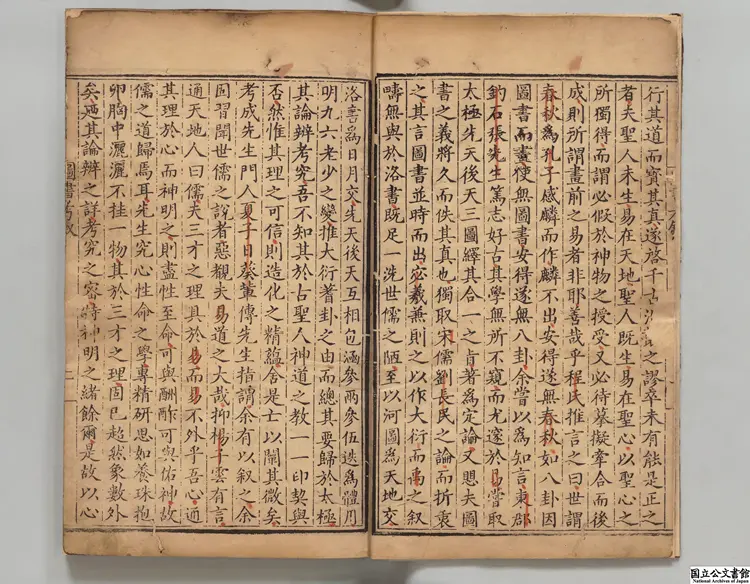 行其道而寶其真遂啓千古
之謬卒未有能是正之
者夫聖人未生易在天地聖人既生易在聖心以聖心之
所獨得而謂必假於神物之授受又必待摹擬牽合而後
成則所謂畫前之易者非耶善哉乎程氏推言之曰世謂
春秋為孔子感麟而作麟不出安得遂無春秋如八卦因
圖書而畫使無圖書安得遂無八卦余嘗以為知言東郡
釣石張先生篤志好古其學無所不窺而尤邃於易嘗取
太極先天後天三圖繹其合一之肯著為定論又思夫圖
書之義將久而佚其真也獨取宋儒劉長民之論而折衷
之其言圖書並時而出宓羲兼則之以作大衍而禹之叙
疇無與於洛書既足一洗世儒之陋至以河圖為天地交
洛書為日月交先天後天互相包涵參兩參伍迭為體用
明九六老少之變推大衍蓍卦之由而總其要歸於太極
其論辨考究吾不知其於古聖人神道之教一一印契與
否然惟其理之可信則造化之精蘊舍是亡以闡其微矣
考成先生門人夏子日葵董傳先生指謂余有以叙之余
固習聞世儒之說者惡覩夫易道之大哉抑楊子雲有言
通天地人曰儒夫三才之理具於易而易不外乎吾心通
其理於心而神明之則盡性至命可與酬酢可與佑神故
儒之道歸焉耳先生究心性命之學專精研思如養珠抱
卵胸中灑灑不挂一物其於三才之理固已超然象數外
矣廼其論辨之詳考究之密特神明之緒餘爾是故以心
圖書考叙
二
国立公文書館
National Archives of Japan